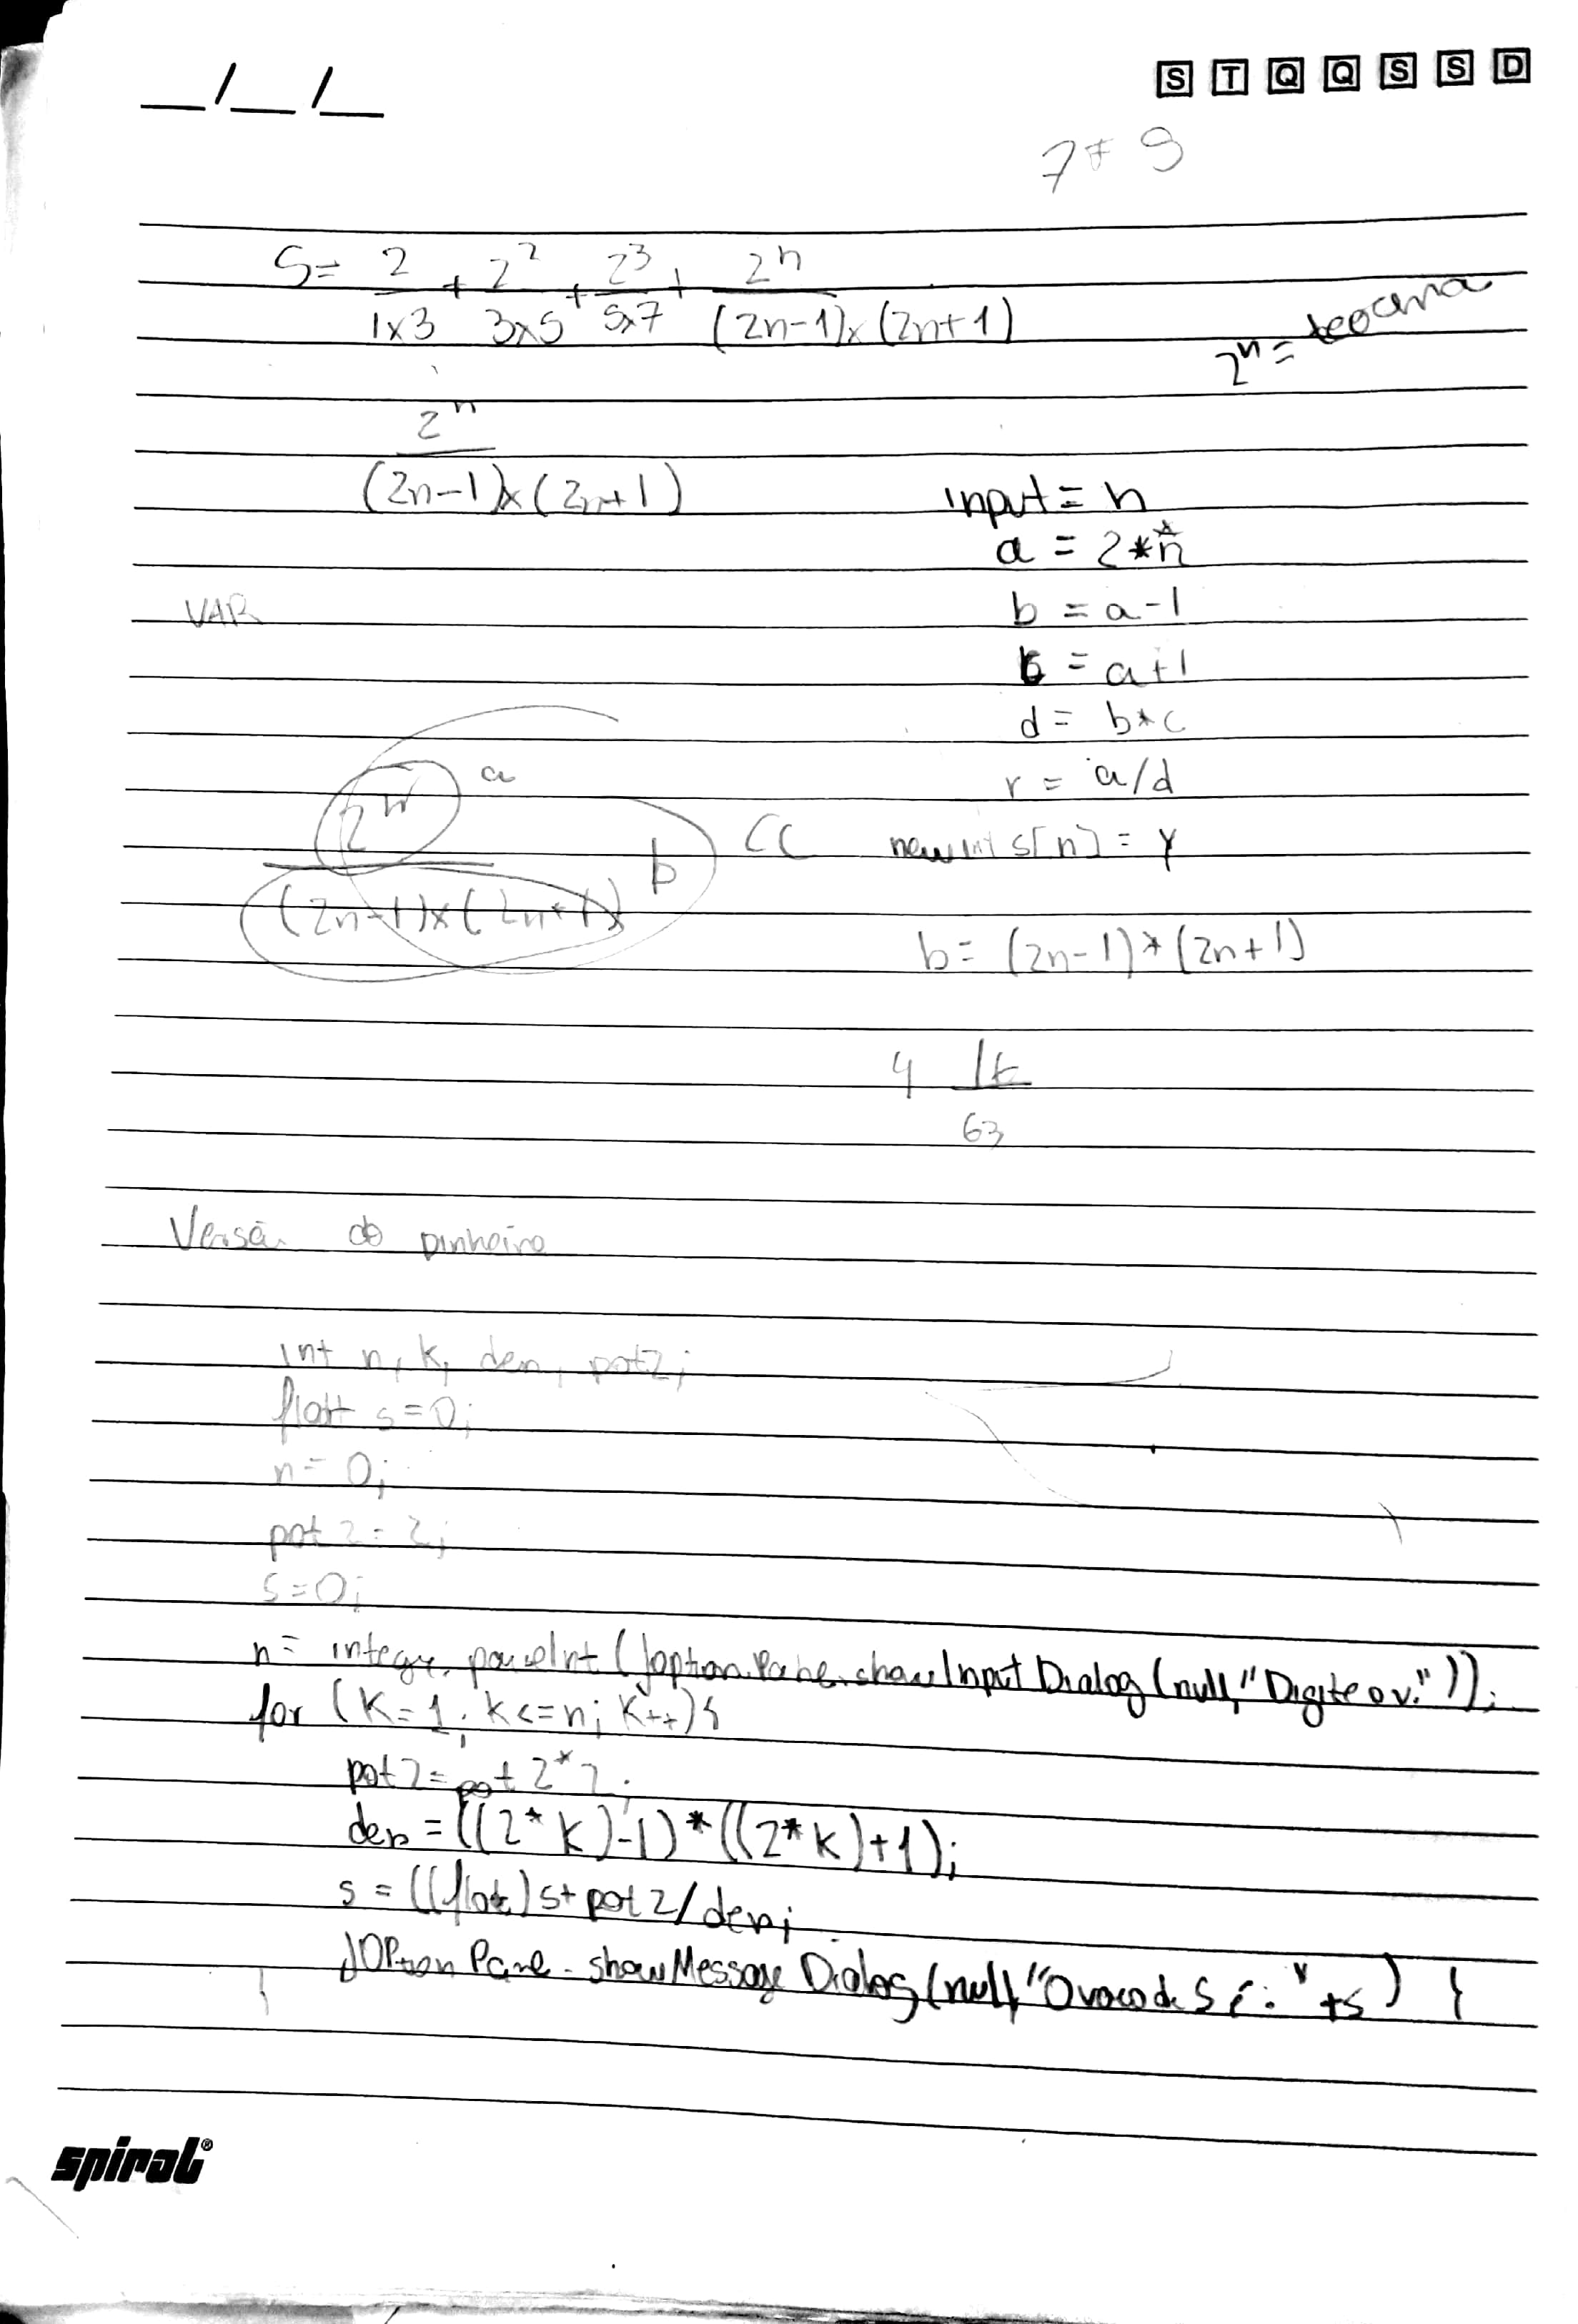 __/__/__
S T Q Q S S D
7 * 9
S = 2/1x3 + 2²/3x5 + 2³/5x7 + 2ⁿ/(2n-1)x(2n+1)
2ⁿ =
2ⁿ/(2n-1)x(2n+1)
input = n
a = 2**n
VAR
b = a-1
c = a+1
d = b*c
r = a/d
2ⁿ a
(2n-1)x(2n+1) b
new int s[n] = r
b = (2n-1)*(2n+1)
4
63
Versão do pinheiro
int n, k, den, pot2;
float s=0;
n = 0;
pot2 = 2;
s=0;
n = integer.parseInt (JoptionPane.showInputDialog(null,"Digite o v:"));
for (K=1; k<=n; K++){
pot2 = pot2*2;
den = ((2*k)-1)*((2*k)+1);
s = ((float)s+pot2/den;
JOptionPane.showMessageDialog(null,"O valor de S é:"+s) }
}
spiral®